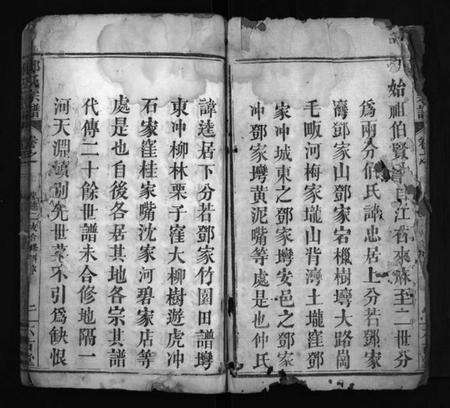 始祖伯賢
江西來麻至二世分
為兩分伯氏諱忠居上分若鄧家
灣鄧家山鄧家宕檵樹塆大路崗
毛畈河梅家壠山背灣土壠窪鄧
家冲城東之鄧家塆安邑之鄧家
冲鄧家塆黄泥嘴等處是也仲氏
諱逵居下分若鄧家竹園田譜塆
東冲柳林栗子窪大柳樹遊虎冲
石家窪桂家嘴沈家河碧家店等
處是也自後各居其地各宗其譜
代傳二十餘世譜未合修地隔一
河天淵頓别先世莫不引爲缺恨